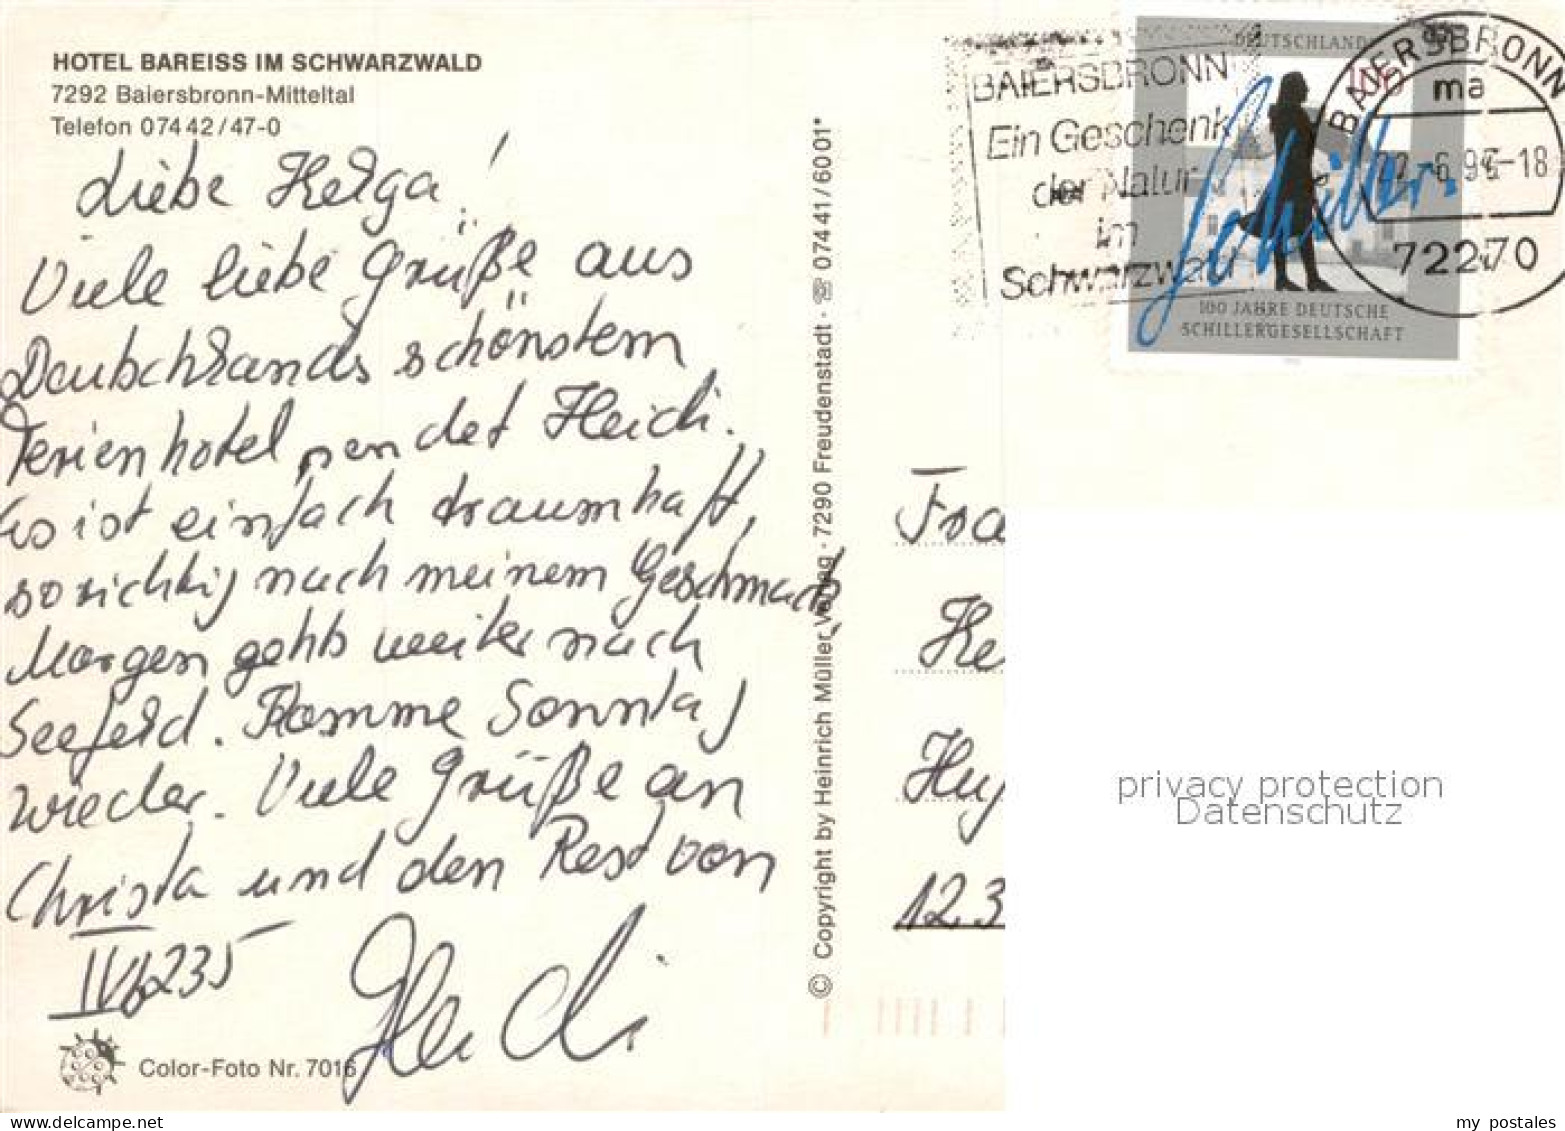 HOTEL BAREISS IM SCHWARZWALD
7292 Baiersbronn-Mitteltal
Telefon 07442/47-0
Liebe Helga!
Viele liebe Grüße aus
Deutschlands schönstem
Ferienhotel sendet Heidi.
Es ist einfach traumhaft,
so richtig nach meinem Geschmack.
Morgen gehts weiter nach
Seefeld. Komme Sonntag
wieder. Viele Grüße an
Christa und den Rest von
Heidi
Color-Foto Nr. 7016
© Copyright by Heinrich Müller Verlag · 7290 Freudenstadt · ☏ 07441/6001*
BAIERSBRONN
Ein Geschenk
der Natur
im
Schwarzwald
DEUTSCHLAND
100
Schiller.
100 JAHRE DEUTSCHE
SCHILLERGESELLSCHAFT
BAIERSBRONN
ma
-18
72270
Fra
He
Hu
123
privacy protection
Datenschutz
my postales